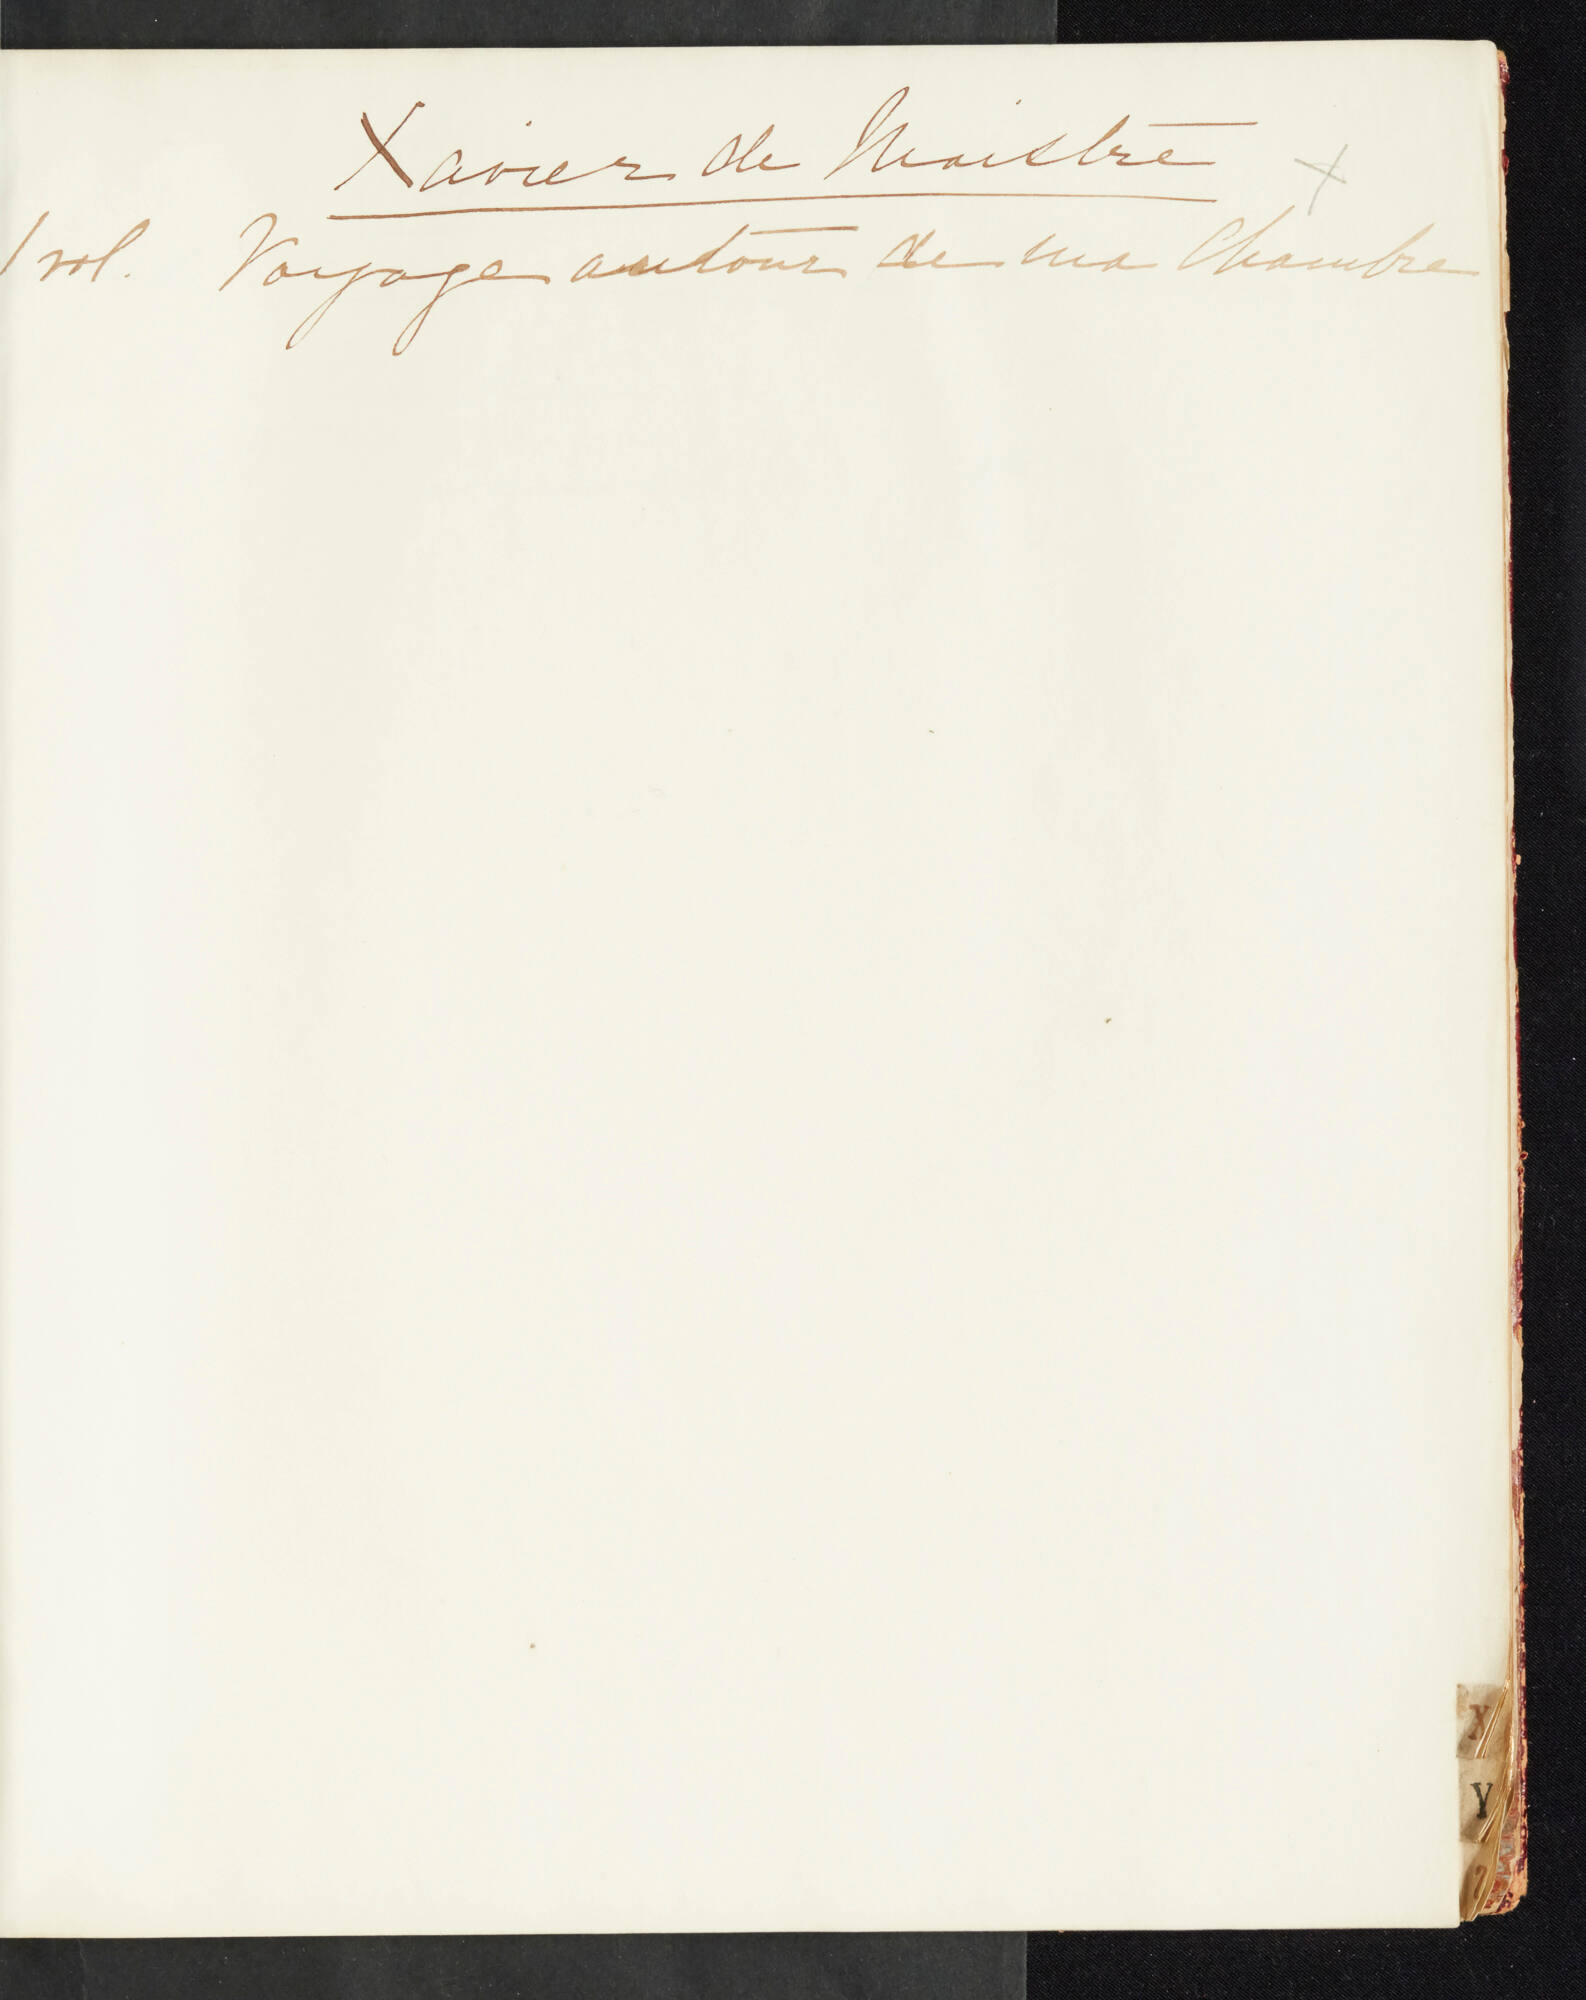 Xavier de Maistre x
1 vol. Voyage autour de ma Chambre
X
Y
Z